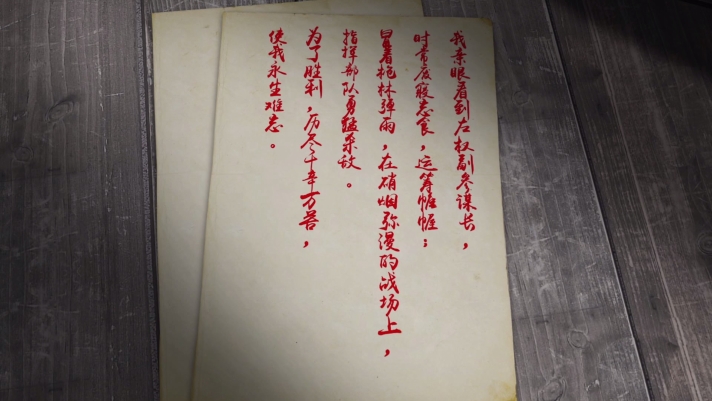 我亲眼看到左权副参谋长，
时常废寝忘食，运筹帷幄；
冒着枪林弹雨，在硝烟弥漫的战场上，
指挥部队勇猛杀敌。
为了胜利，历尽千辛万苦，
使我永生难忘。